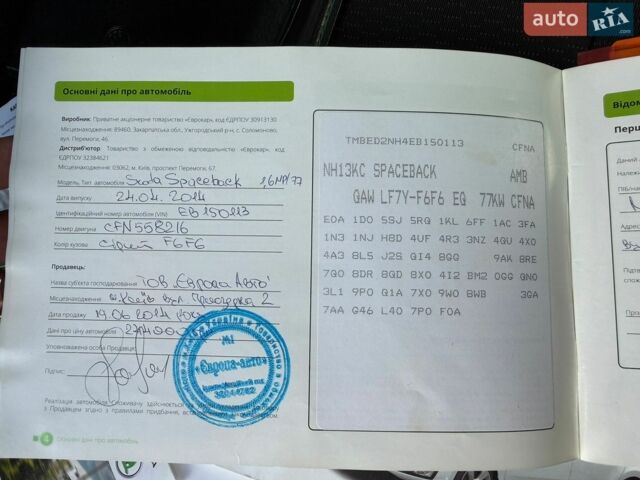 auto RIA.com
Основні дані про автомобіль
Виробник: Приватне акціонерне товариство «Єврокар», код ЄДРПОУ 30913130
Місцезнаходження: 89460, Закарпатська обл., Ужгородський р-н, с. Соломоново,
вул. Перемоги, 46
Дистриб'ютор: Товариство з обмеженою відповідальністю «Єврокар», код
ЄДРПОУ 32384621
Місцезнаходження: 03062, м. Київ, проспект Перемоги, 67.
Модель Тип автомобіля Scoda Spaceback 1,6MPI/77
Дата випуску 24.04.2014
Ідентифікаційний номер автомобіля (VIN) EB150113
Номер двигуна CFN558216
Колір кузова сірий F6F6
Продавець:
Назва суб'єкта господарювання ТОВ „Європа Авто"
Місцезнаходження м. Київ вул. 2
Дата продажу 19.06.2014
Дані про ціну автомобіля
Уповноважена особа Продавця:
Підпис:
№1
«Європа-авто»
Реалізація автомобіля Споживачу здійснюється
з Продавцем згідно з правилами придбання,
4 Основні дані про автомобіль
TMBED2NH4EB150113 CFNA
NH13KC SPACEBACK AMB
GAW LF7Y-F6F6 EQ 77KW CFNA
E0A 1D0 5SJ 5RQ 1KL 6FF 1AC 3FA
1N3 1NJ H8D 4UF 4R3 3NZ 4QU 4X0
4A3 8L5 J2S QI4 8GQ 9AK 8RE
7Q0 8DR 8GD 8X0 4I2 BM2 0GG QN0
3L1 9P0 Q1A 7X0 9W0 8WB 3GA
7AA G46 L40 7P0 F0A
Відом
Перш